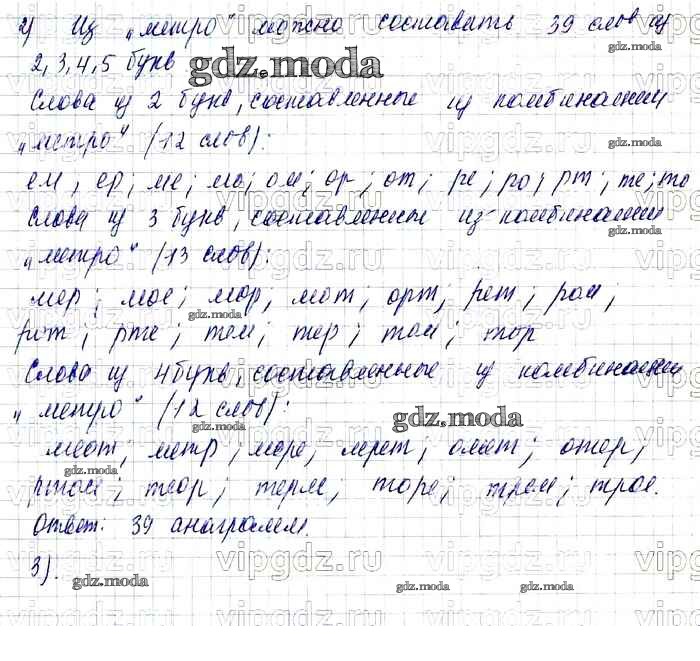 2) Из „метро" можно составить 39 слов из
2,3,4,5 букв
gdz.moda
Слова из 2 букв, составленные из комбинации
„метро" (12 слов):
ем; ер; ме; мо; ом; ор; от; ре; ро; рт; те; то
Слова из 3 букв, составленные из комбинации
„метро" (13 слов):
мер; мое; мор; мот; орт; рет; ром;
рот; рте; тем; тер; том; тор
Слова из 4 букв, составленные из комбинации
„метро" (12 слов):
gdz.moda
меот; метр; море; мрет; омет; отер;
ртом; теор; терм; торе; трем; трое.
Ответ: 39 анаграмм.
3).
vipgdz.ru
gdz.moda